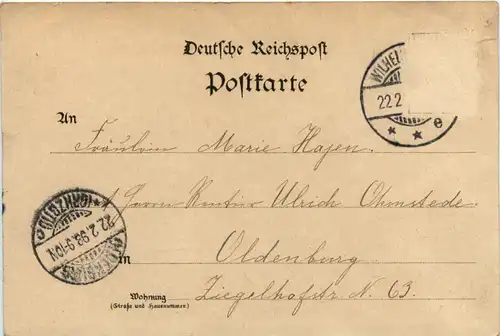 Deutsche Reichspost
Postkarte
WILHEL
22.2
* * e
An
Fräulein Marie Hajen.
Herrn Rentier Ulrich Ohmstede
in Oldenburg
Wohnung
(Straße und Hausnummer)
Ziegelhofstr. N. 63.
OLDENBURG
22.2.98.9-10N.
(GRHZGTH)